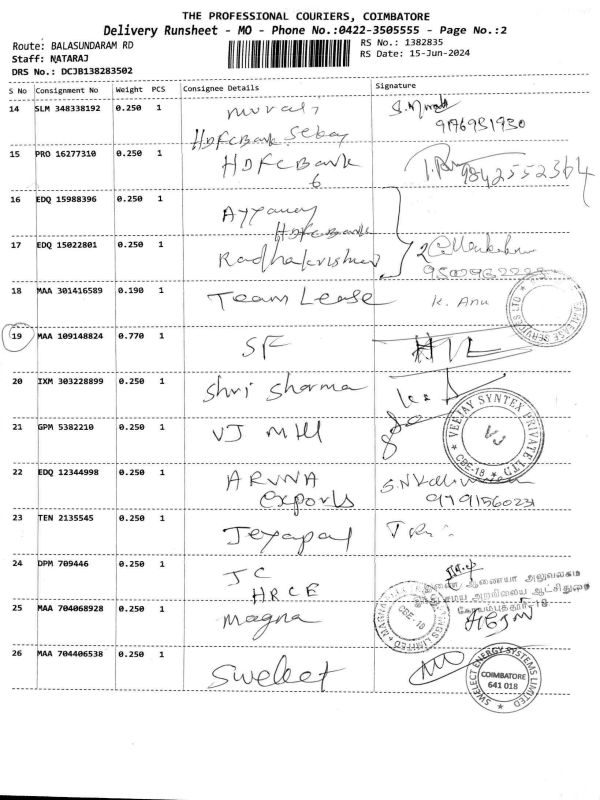 THE PROFESSIONAL COURIERS, COIMBATORE
Delivery Runsheet - MO - Phone No.:0422-3505555 - Page No.:2
Route: BALASUNDARAM RD
RS No.: 1382835
Staff: NATARAJ
RS Date: 15-Jun-2024
DRS No.: DCJB138283502
S No Consignment No Weight PCS Consignee Details Signature
14 SLM 348338192 0.250 1 murali
HDFC Bank
9176931930
15 PRO 16277310 0.250 1 HDFC Bank
6
9842552364
16 EDQ 15988396 0.250 1
HDFC Bank
17 EDQ 15022801 0.250 1 Radhakrishnan
18 MAA 301416589 0.190 1 Team Lease K. Anu
19 MAA 109148824 0.770 1 SF
20 IXM 303228899 0.250 1 Shri Sharma
21 GPM 5382210 0.250 1 VJ Mill
VEEJAY SYNTEX PRIVATE LTD
CBE-18
VJ
22 EDQ 12344998 0.250 1 ARUNA
exports
9791560231
23 TEN 2135545 0.250 1 Jeyapal
24 DPM 709446 0.250 1 JC
HRCE
ஆணையர் அலுவலகம்
அறநிலைய ஆட்சித்துறை
கோயம்புத்தூர்-18
25 MAA 704068928 0.250 1 Magna
CBE-18
26 MAA 704406538 0.250 1 Swelect
SWELECT ENERGY SYSTEMS LIMITED
COIMBATORE
641 018